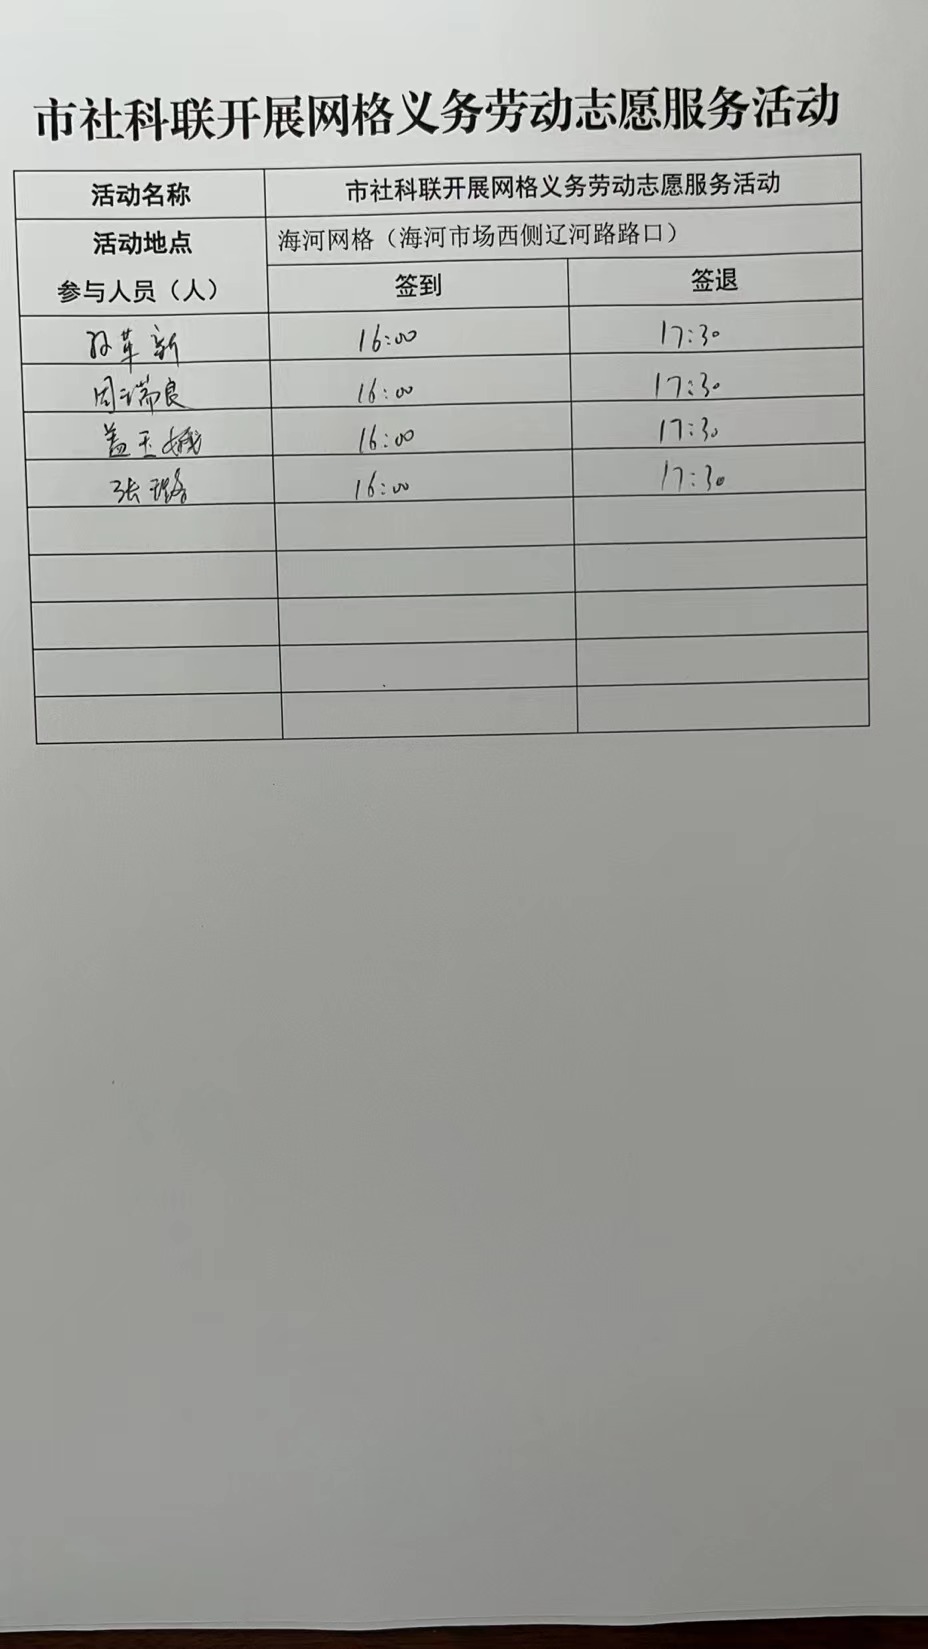 市社科联开展网格义务劳动志愿服务活动
活动名称 市社科联开展网格义务劳动志愿服务活动
活动地点 海河网格（海河市场西侧辽河路路口）
参与人员（人） 签到 签退
孙革新 16:00 17:30
周瑞良 16:00 17:30
盖玉 16:00 17:30
张璐 16:00 17:30